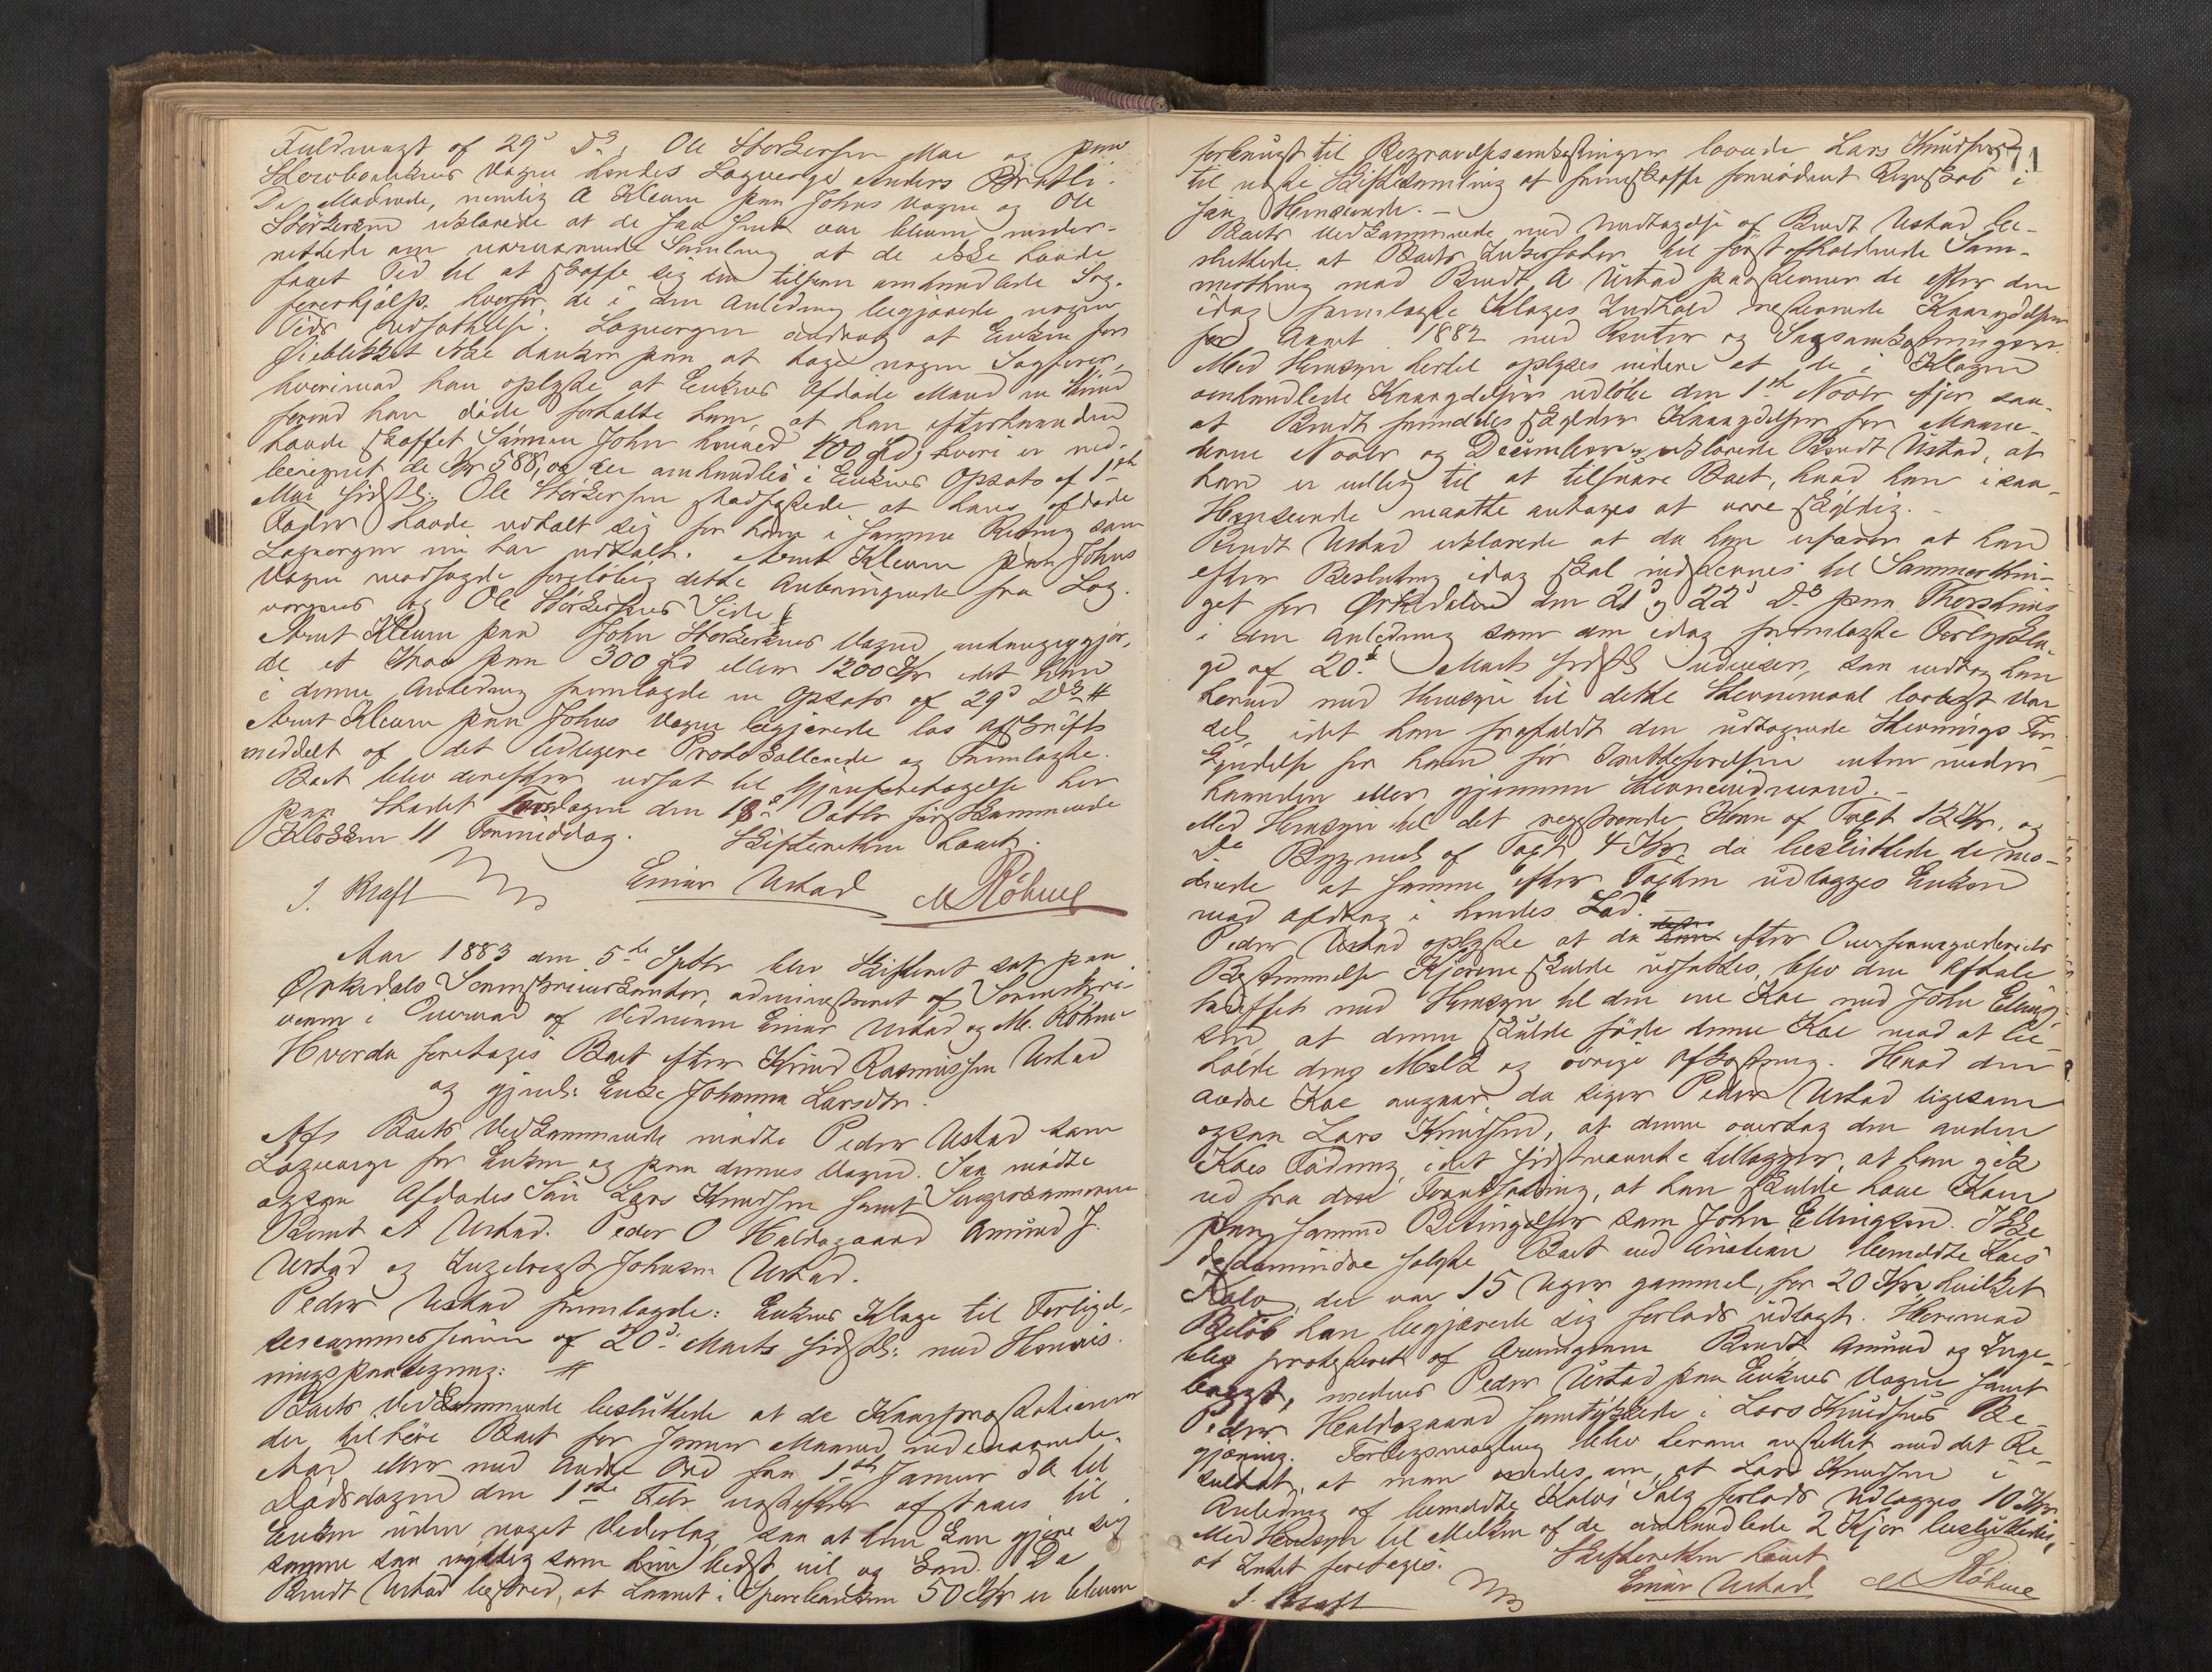 Fuldmagt af 29' Ds, Ole Størkersen Moe og paa
Skovbankens Vegne hendes Laugverge Anders Bratli.
De Mødende, nemlig A Kleven paa Johns Vegne og Ole
Størkersen erklærede at de saa sent var bleven under-
rettede om nærværende Samling at de ikke havde
faaet Tid til at skaffe sig den tilsyn omhandlede Sag-
førerhjælp, hvorfor de i den Anledning begjærede nogen
Tids Udsættelse. Laugvergen androg at Enken for
Øieblikket ikke tænker paa at tage nogen Sagfører,
hvorimod han oplyste at Enkens Afdøde Mand en Stund
forend han døde fortalte ham, at han efterhaanden
havde skaffet Sønnen John henved 400 Spd, hvori er med-
beregnet de Kr 588, og der omhandles i Enkens Opsats af 1ste
Mai sidstl. Ole Størkersen stadfæstede at hans afdøde
Fader havde udtalt sig for ham i samme Retning som
Laugvergen nu har udtalt. Arnt Kleven paa Johns
Vegne modsagde foreløbig dette Anbringende fra Lag-
vergens og Ole Størkersens Side.
Arnt Kleven paa John Størkersens Vegne anhængiggjor-
de et Krav paa 300 Spd eller 1200 Kr idet han
i denne Anledning fremlagde en Opsats af 29' Ds #
Arnt Kleven paa Johns Vegne begjærede las Afskrift
meddelt af det tidligere Protokollerede og Fremlagte.
Boet blev derefter udsat til Gjenforetagelse her
paa Stedet Torsdagen den 18' Octbr førstkommende
Klokken 11 Formiddag.
Skifteretten hævet.
J. Kraft Einar Ustad M Röhme
Aar 1883 den 5te Septbr blev Skifteret sat paa
Ørkedals Sorenskriverkontor, administreret af Sorenskri-
veren i Overvær af Vidnerne Einar Ustad og M. Röhme
Hvorda foretages Boet efter Knud Rasmussen Ustad
og gjenl: Enke Johanna Larsdtr.
Af Boets Vedkommende mødte Peder Ustad som
Laugverge for Enken og paa dennes Vegne. Saa mødte
ogsaa Afdødes Søn Lars Knudsen samt
Bernt A Ustad. Peder O Haldogaard Amund J.
Ustad og Ingebregt Johnsen Ustad.
Peder Ustad fremlagde: Enkens Klage til Forligel-
sescommissionen af 20' Marts sidstl: med Henvis-
ningspaategning: #
Boets Vedkommende besluttede at de Kaarpræstationer
der tilhøre Boet for Januar Maaned indeværende
Aar eller med andre Ord fra 1ste Januar da til
Dødsdagen den 1ste Febr næstefter afstaaes til
Enken uden noget Vederlag saa at hun kan gjøre sig
samme saa nyttig som hun bedst vil og kan. Da
Berndt Ustad bestred, at Laanet i Sparebanken 50 Kr er bleven
271
forbrugt til Begravelsesomkostninger lovede Lars Knudsen
til næste Skiftesamling at fremskaffe fornødent Regnskab i
saa Henseende.—
Boets Vedkommende med Undtagelse af Berndt Ustad be-
sluttede at Boets Inkassator til først afholdende Sam-
mothing mod Berndt A Ustad paastævner de efter den
idag fremlagte Klages Indhold resterende Kaarydelser
for Aaret 1882 med Renter og Sagsomkostninger.
Med Hensyn hertil oplyses videre at de i Klagen
omhandlede Kaarydelser udløbe den 1ste Novbr ifjor saa-
at Berndt fremdeles skylder Kaarydelser for Maane-
derne Novbr og December, erklærede Berndt Ustad, at
han er villig til at tilsvare Boet, hvad han i saa-
Henseende maatte antages at være skyldig.—
Berndt Ustad erklærede at da han erfarer at han
efter Beslutning idag skal indstævnes til Sammerthin-
get for Ørkedalen den 21' og 22' Ds paa Thorshus
i den Anledning som den idag fremlagte Forligskla-
ge af 20' Marts sidstl udviser, saa vedtog han
herved med Hensyn til dette Stevnemaal lovligt Var
sel, idet han frafaldt den udtagende Stevnings For-
kyndelse for ham før Inkaldelsen enten under
haanden eller gjennem Stevnevidnerne.—
Med Hensyn til det registrerede Korn af Taxt 12 Kr. og
Do Bygmel af Taxt 4 Kr, da besluttede de mø-
dende at samme efter Taxten udlægges Enken
mod Afdrag i hendes Lod.
Peder Ustad oplyste at da efter Overformynderiets
Bestemmelse Kjørene skulde udsættes, blev den Aftale
truffet med Hensyn til den ene Koe med John Elling
sen, at denne skulde føde denne Koe mod at be-
holde dens Melk og øvrige Afkastning. Hvad den
anden Koe angaar, da siger Peder Ustad ligesom
ogsaa Lars Knudsen, at denne overtog den anden
Koes Fødning, idet sidstnævnte tillægger, at han gik
ud fra den Forudsætning, at han skulde have Koen
paa samme Betingelser som John Ellingsen. Ikke
destomindre solgte Boet ved Auction bemeldte Koes
Kalv, der var 15 Uger gammel, for 20 Kr, hvilket
Beløb han begjærede sig forlods udlagt. Herimod
blev protesteret af Arvingerne Berndt, Amund og Inge-
bregt, medens Peder Ustad paa Enkens Vegne samt
Peder Haldogaard samtykkede i Lars Knudsens Be-
gjæring. Forligsmægling blev derom anstillet med det Re-
sultat, at man enedes om, at Lars Knudsen i
Anledning af bemeldte Kalvs Salg forlods udlægges 10 Kr.
Med Hensyn til Melken af de omhandlede 2 Kjør besluttedes,
at Intet foretages.
Skifteretten hævet
J. Kraft Einar Ustad M Röhme